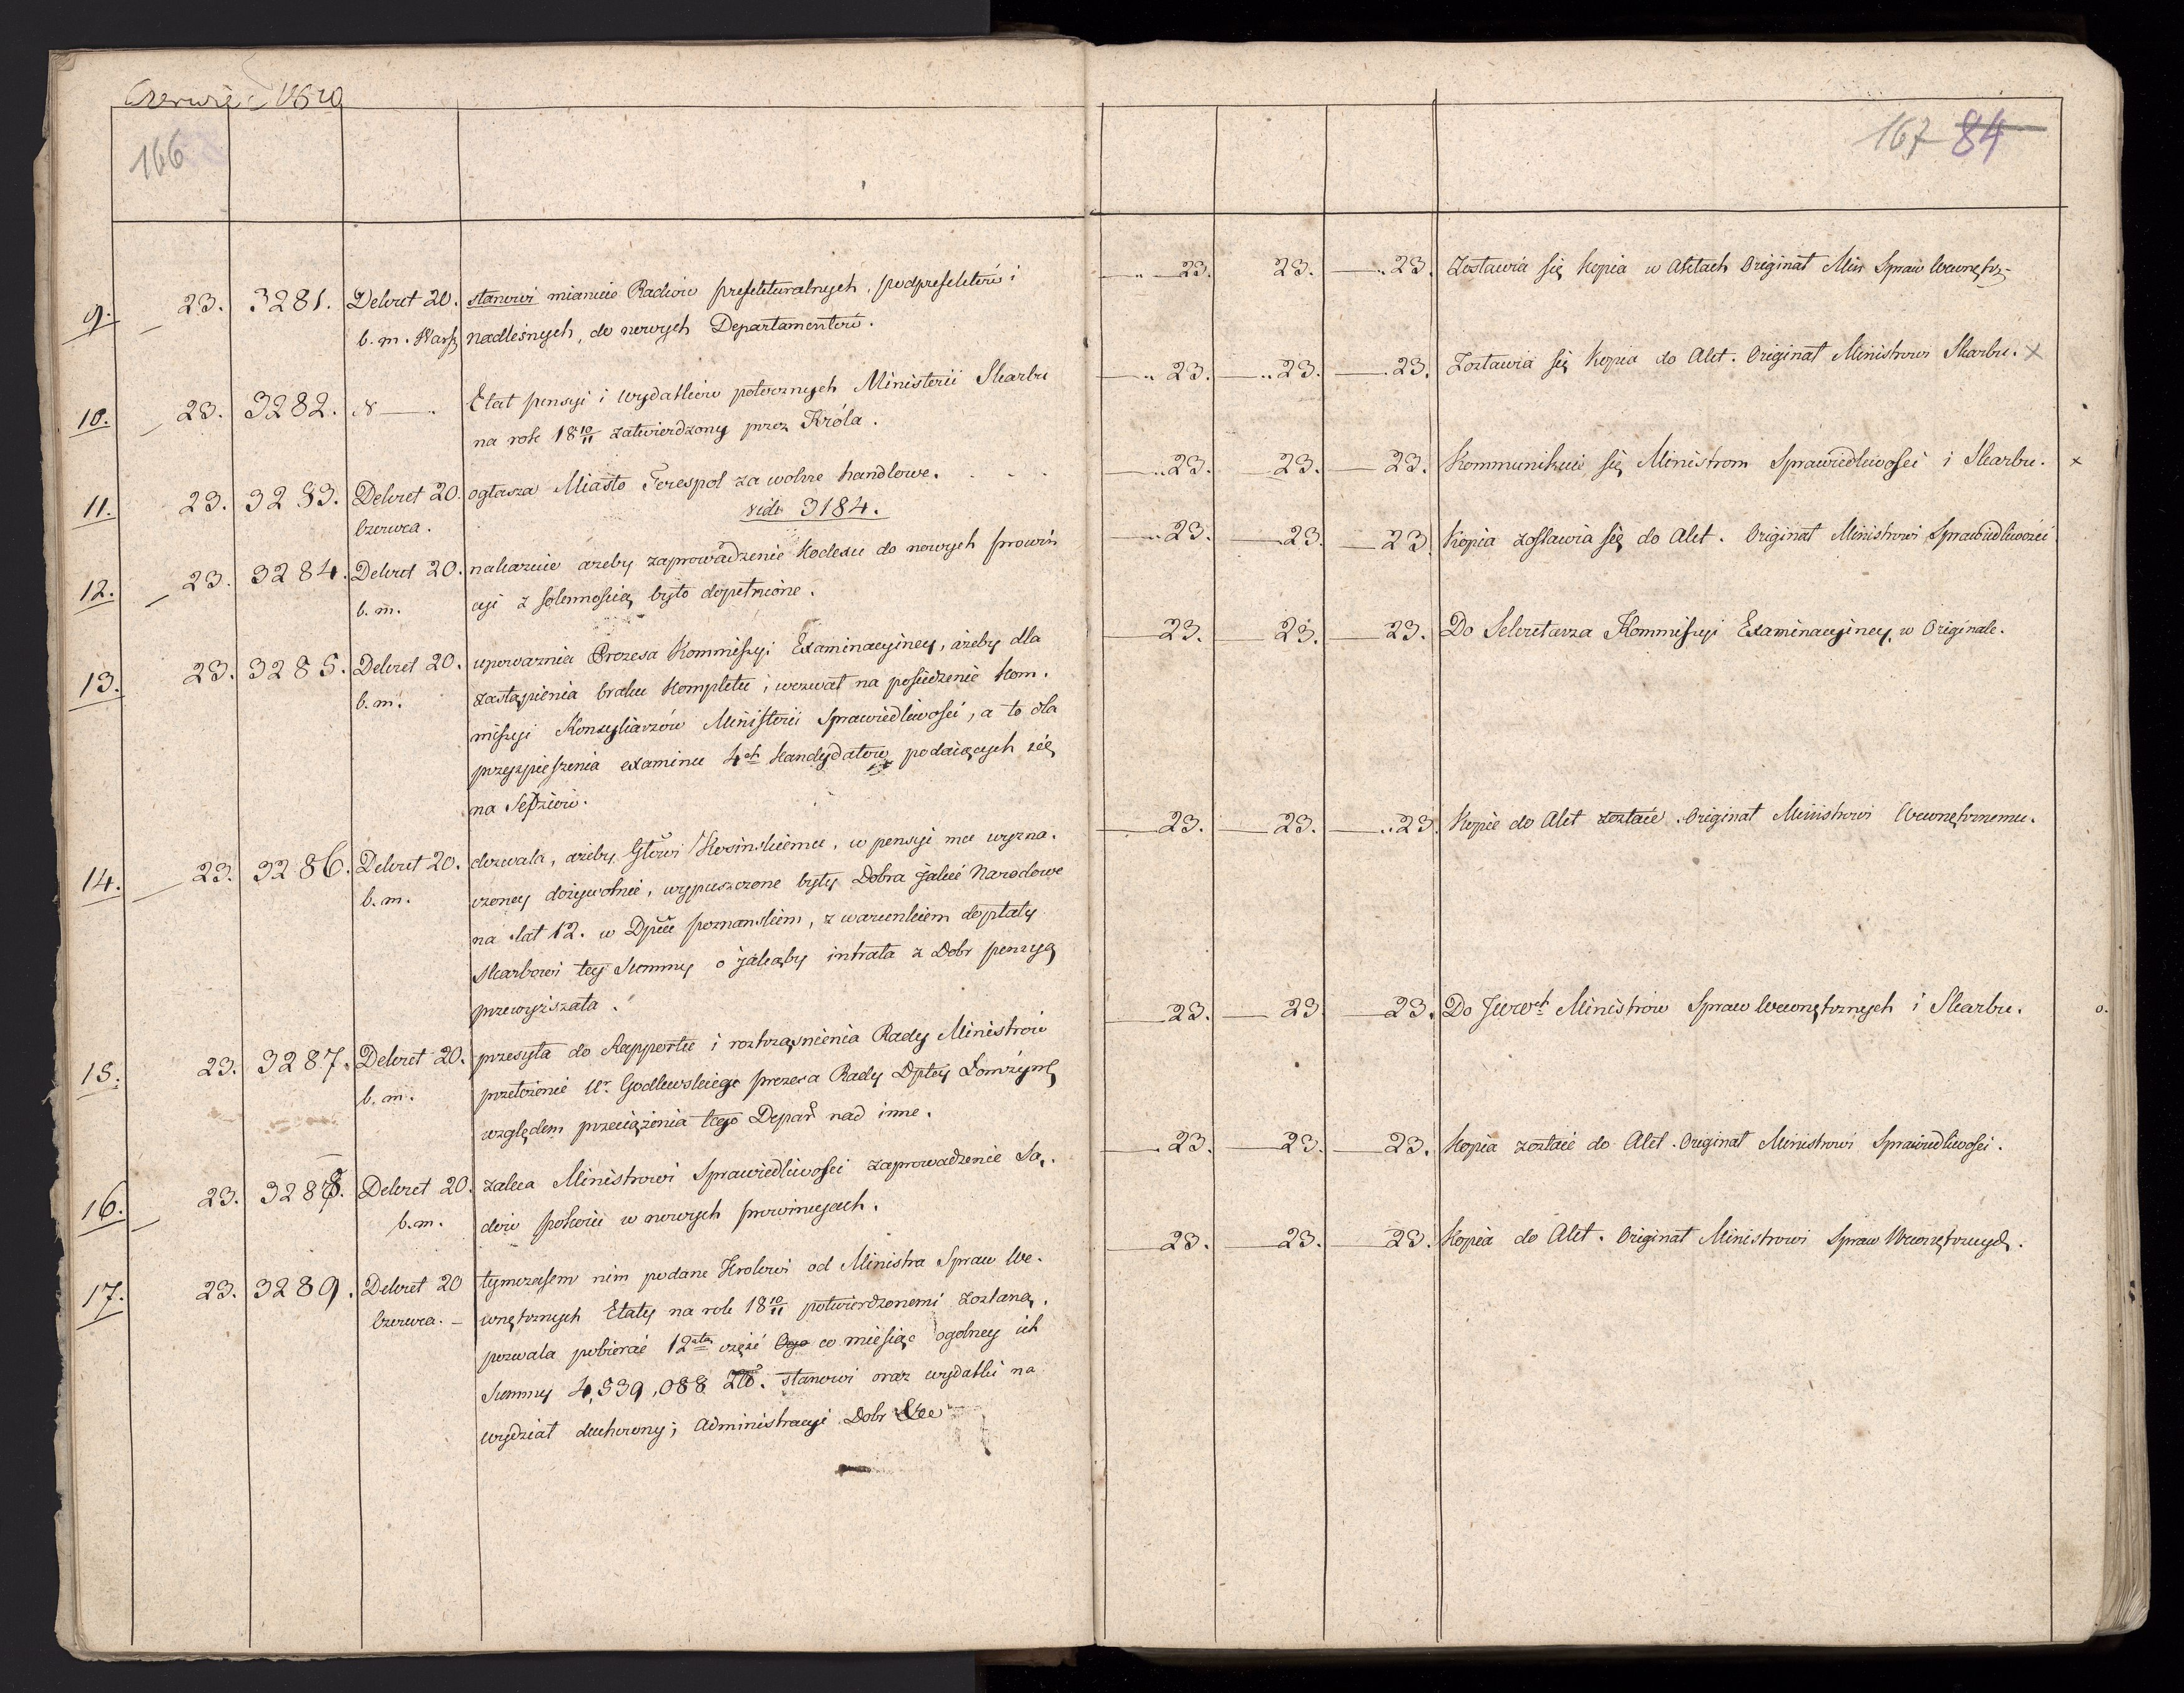 Czerwiec 1810
166
9. 23. 3281. Dekret 20. stanowi mianuie Radców prefekturalnych, podprefektów i
b. m. Warsz nadleśnych, do nowych Departamentów.
10. 23. 3282. Etat pensyi i wydatków potocznych Ministerii Skarbu
na rok 18 10/11 zatwierdzony przez Króla.
11. 23. 3283. Dekret 20. ogłasza Miasto Terespol za wolne handlowe.
Czerwca. vide 3184.
12. 23. 3284. Dekret 20. nakazuie ażeby zaprowadzenie Kodexu do nowych prowin
b. m. cyi z solennością było dopełnione.
13. 23. 3285. Dekret 20. upoważnia Prezesa Kommissyi Examinacyiney, ażeby dla
b. m. zastąpienia braku kompletu, wezwał na posiedzenie Kom.
missyi Konsyliarzów Ministerii Sprawiedliwości, a to dla
przyspieszenia examinu 4ch Kandydatów podaiących się
na Sędziów.
14. 23. 3286. Dekret 20. dozwala, ażeby Głowi Kosinskiemu, w pensyi mu wyzna.
b. m. czoney dożywotnie, wypuszczone były Dobra jakie Narodowe
na lat 12. w Dptcie poznanskiem, z warunkiem dopłaty
Skarbowi tey Summy o jakąby intrata z Dobr pensyą
przewyższała.
15. 23. 3287. Dekret 20. przesyła do Rapportu i roztrząśnienia Rady Ministrów
b. m. przełożenie Ur. Godlewskiego prezesa Rady Dptey Łomżyńs
względem przeciążenia tego Depar nad inne.
16. 23. 3288. Dekret 20. zaleca Ministrowi Sprawiedliwości zaprowadzenie Są.
b. m. dów pokoiu w nowych prowincyach.
17. 23. 3289. Dekret 20 tymczasem nim podane Krolowi od Ministra Spraw We.
Czerwca. wnętrznych Etaty na rok 18 10/11 potwierdzonemi zostaną,
pozwala pobierać 12stą część co miesiąc ogolney ich
Summy 4,539,088 Złt. stanowi oraz wydatki na
wydział duchowny; Administracyi Dobr &ce
167 84
23. 23. 23. Zostawia się kopia w Aktach Originał Min Spraw Wewnętrz
23. 23. 23. Zostawia się Kopia do Akt. Originał Ministrowi Skarbu. x
23. 23. 23. Kommunikuie się Ministrom Sprawiedliwości i Skarbu. x
23. 23. 23. Kopia zostawia się do Akt. Originał Ministrowi Sprawiedliwości
23. 23. 23. Do Sekretarza Kommissyi Examinacyiney, w Originale.
23. 23. 23. Kopie do Akt zostaie. Originał Ministrowi Wewnętrznemu.
23. 23 23. Do JWch Ministrów Spraw Wewnętrznych i Skarbu. o.
23. 23. 23. Kopia zostaie do Akt. Originał Ministrowi Sprawiedliwości.
23. 23. 23. Kopia do Akt. Originał Ministrowi Spraw Wewnętrznych.